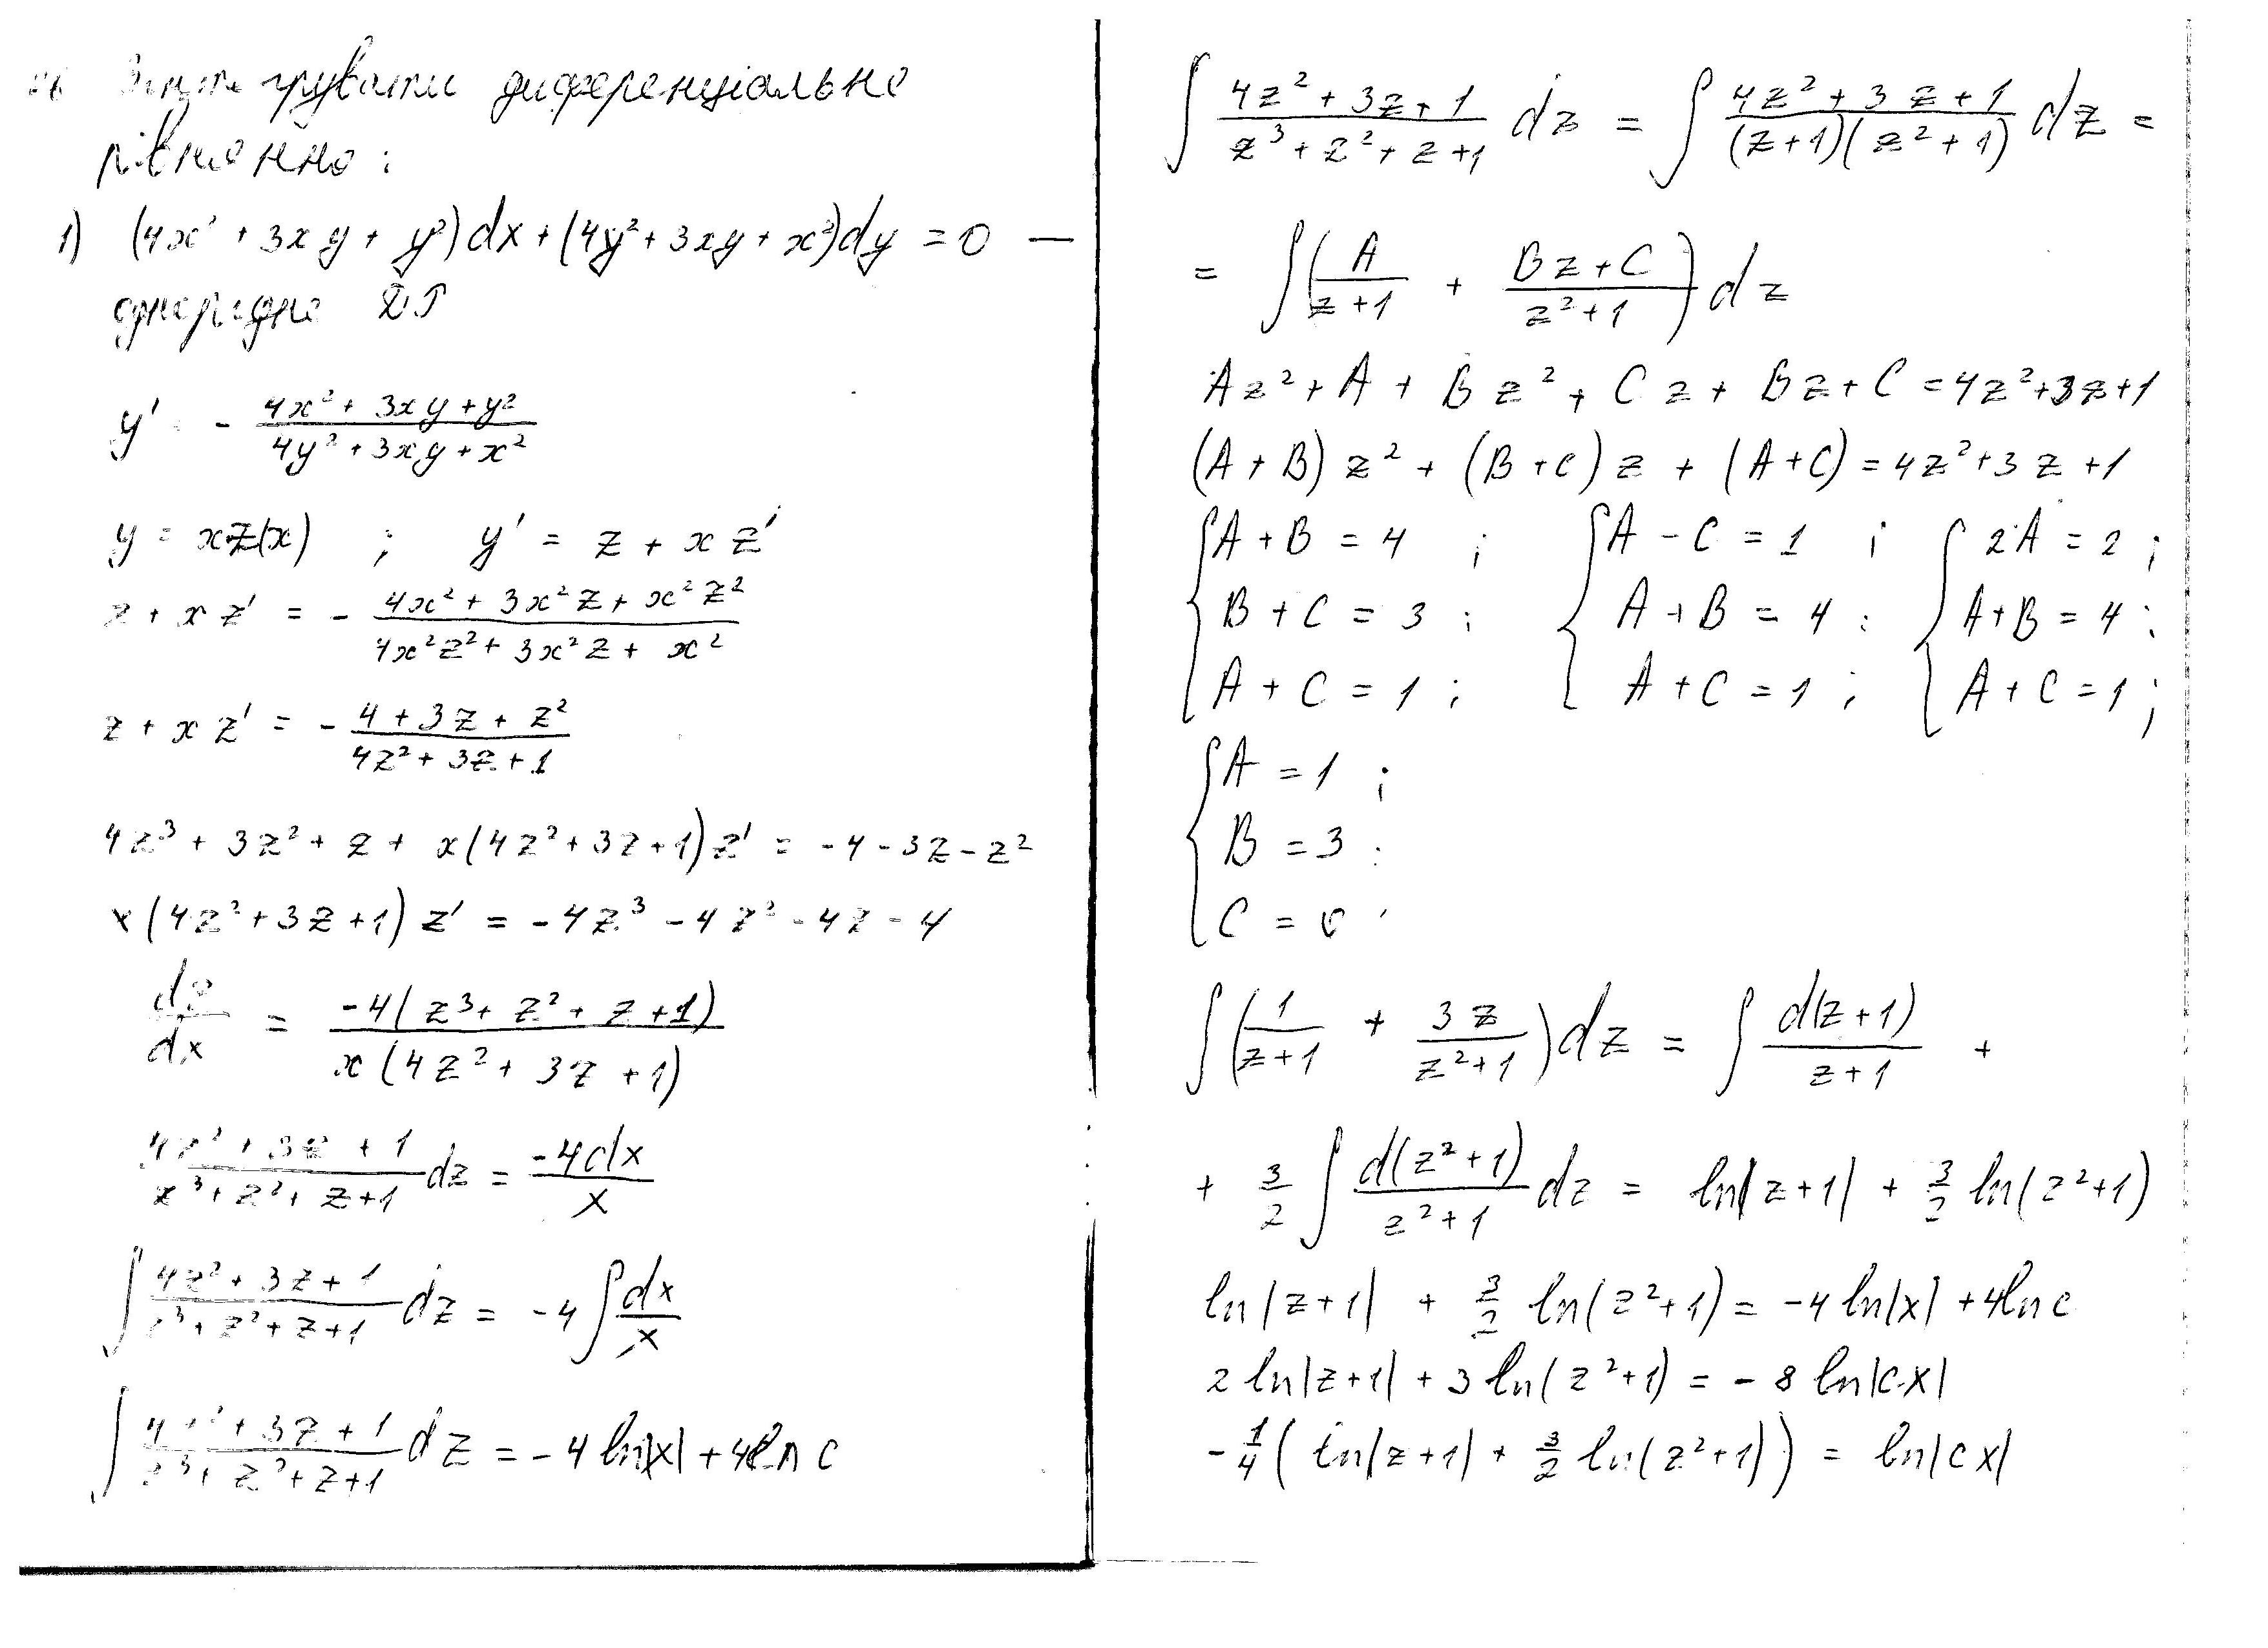 Зінтегрувати диференціальне
рівняння:
1) (4x² + 3xy + y²)dx + (4y² + 3xy + x²)dy = 0 —
однорідне ДР
y' = - (4x² + 3xy + y²)/(4y² + 3xy + x²)
y = xz(x) ; y' = z + xz'
z + xz' = - (4x² + 3x²z + x²z²)/(4x²z² + 3x²z + x²)
z + xz' = - (4 + 3z + z²)/(4z² + 3z + 1)
4z³ + 3z² + z + x(4z² + 3z + 1)z' = -4 - 3z - z²
x(4z² + 3z + 1)z' = -4z³ - 4z² - 4z - 4
dz/dx = -4(z³ + z² + z + 1)/(x(4z² + 3z + 1))
(4z² + 3z + 1)/(z³ + z² + z + 1) dz = -4dx/x
∫ (4z² + 3z + 1)/(z³ + z² + z + 1) dz = -4 ∫ dx/x
∫ (4z² + 3z + 1)/(z³ + z² + z + 1) dz = -4 ln|x| + 4ln c
∫ (4z² + 3z + 1)/(z³ + z² + z + 1) dz = ∫ (4z² + 3z + 1)/((z+1)(z² + 1)) dz =
= ∫ (A/(z+1) + (Bz + C)/(z² + 1)) dz
Az² + A + Bz² + Cz + Bz + C = 4z² + 3z + 1
(A + B)z² + (B + C)z + (A + C) = 4z² + 3z + 1
{A + B = 4 ; {A - C = 1 ; {2A = 2 ;
B + C = 3 ; A + B = 4 ; A + B = 4 ;
A + C = 1 ; A + C = 1 ; A + C = 1 ;
{A = 1 ;
B = 3 ;
C = 0 ,
∫ (1/(z+1) + 3z/(z² + 1)) dz = ∫ d(z+1)/(z+1) +
+ 3/2 ∫ d(z² + 1)/(z² + 1) dz = ln|z+1| + 3/2 ln(z² + 1)
ln|z+1| + 3/2 ln(z² + 1) = -4 ln|x| + 4ln c
2 ln|z+1| + 3 ln(z² + 1) = - 8 ln|cx|
- 1/4 ( ln|z+1| + 3/2 ln(z² + 1)) = ln|cx|